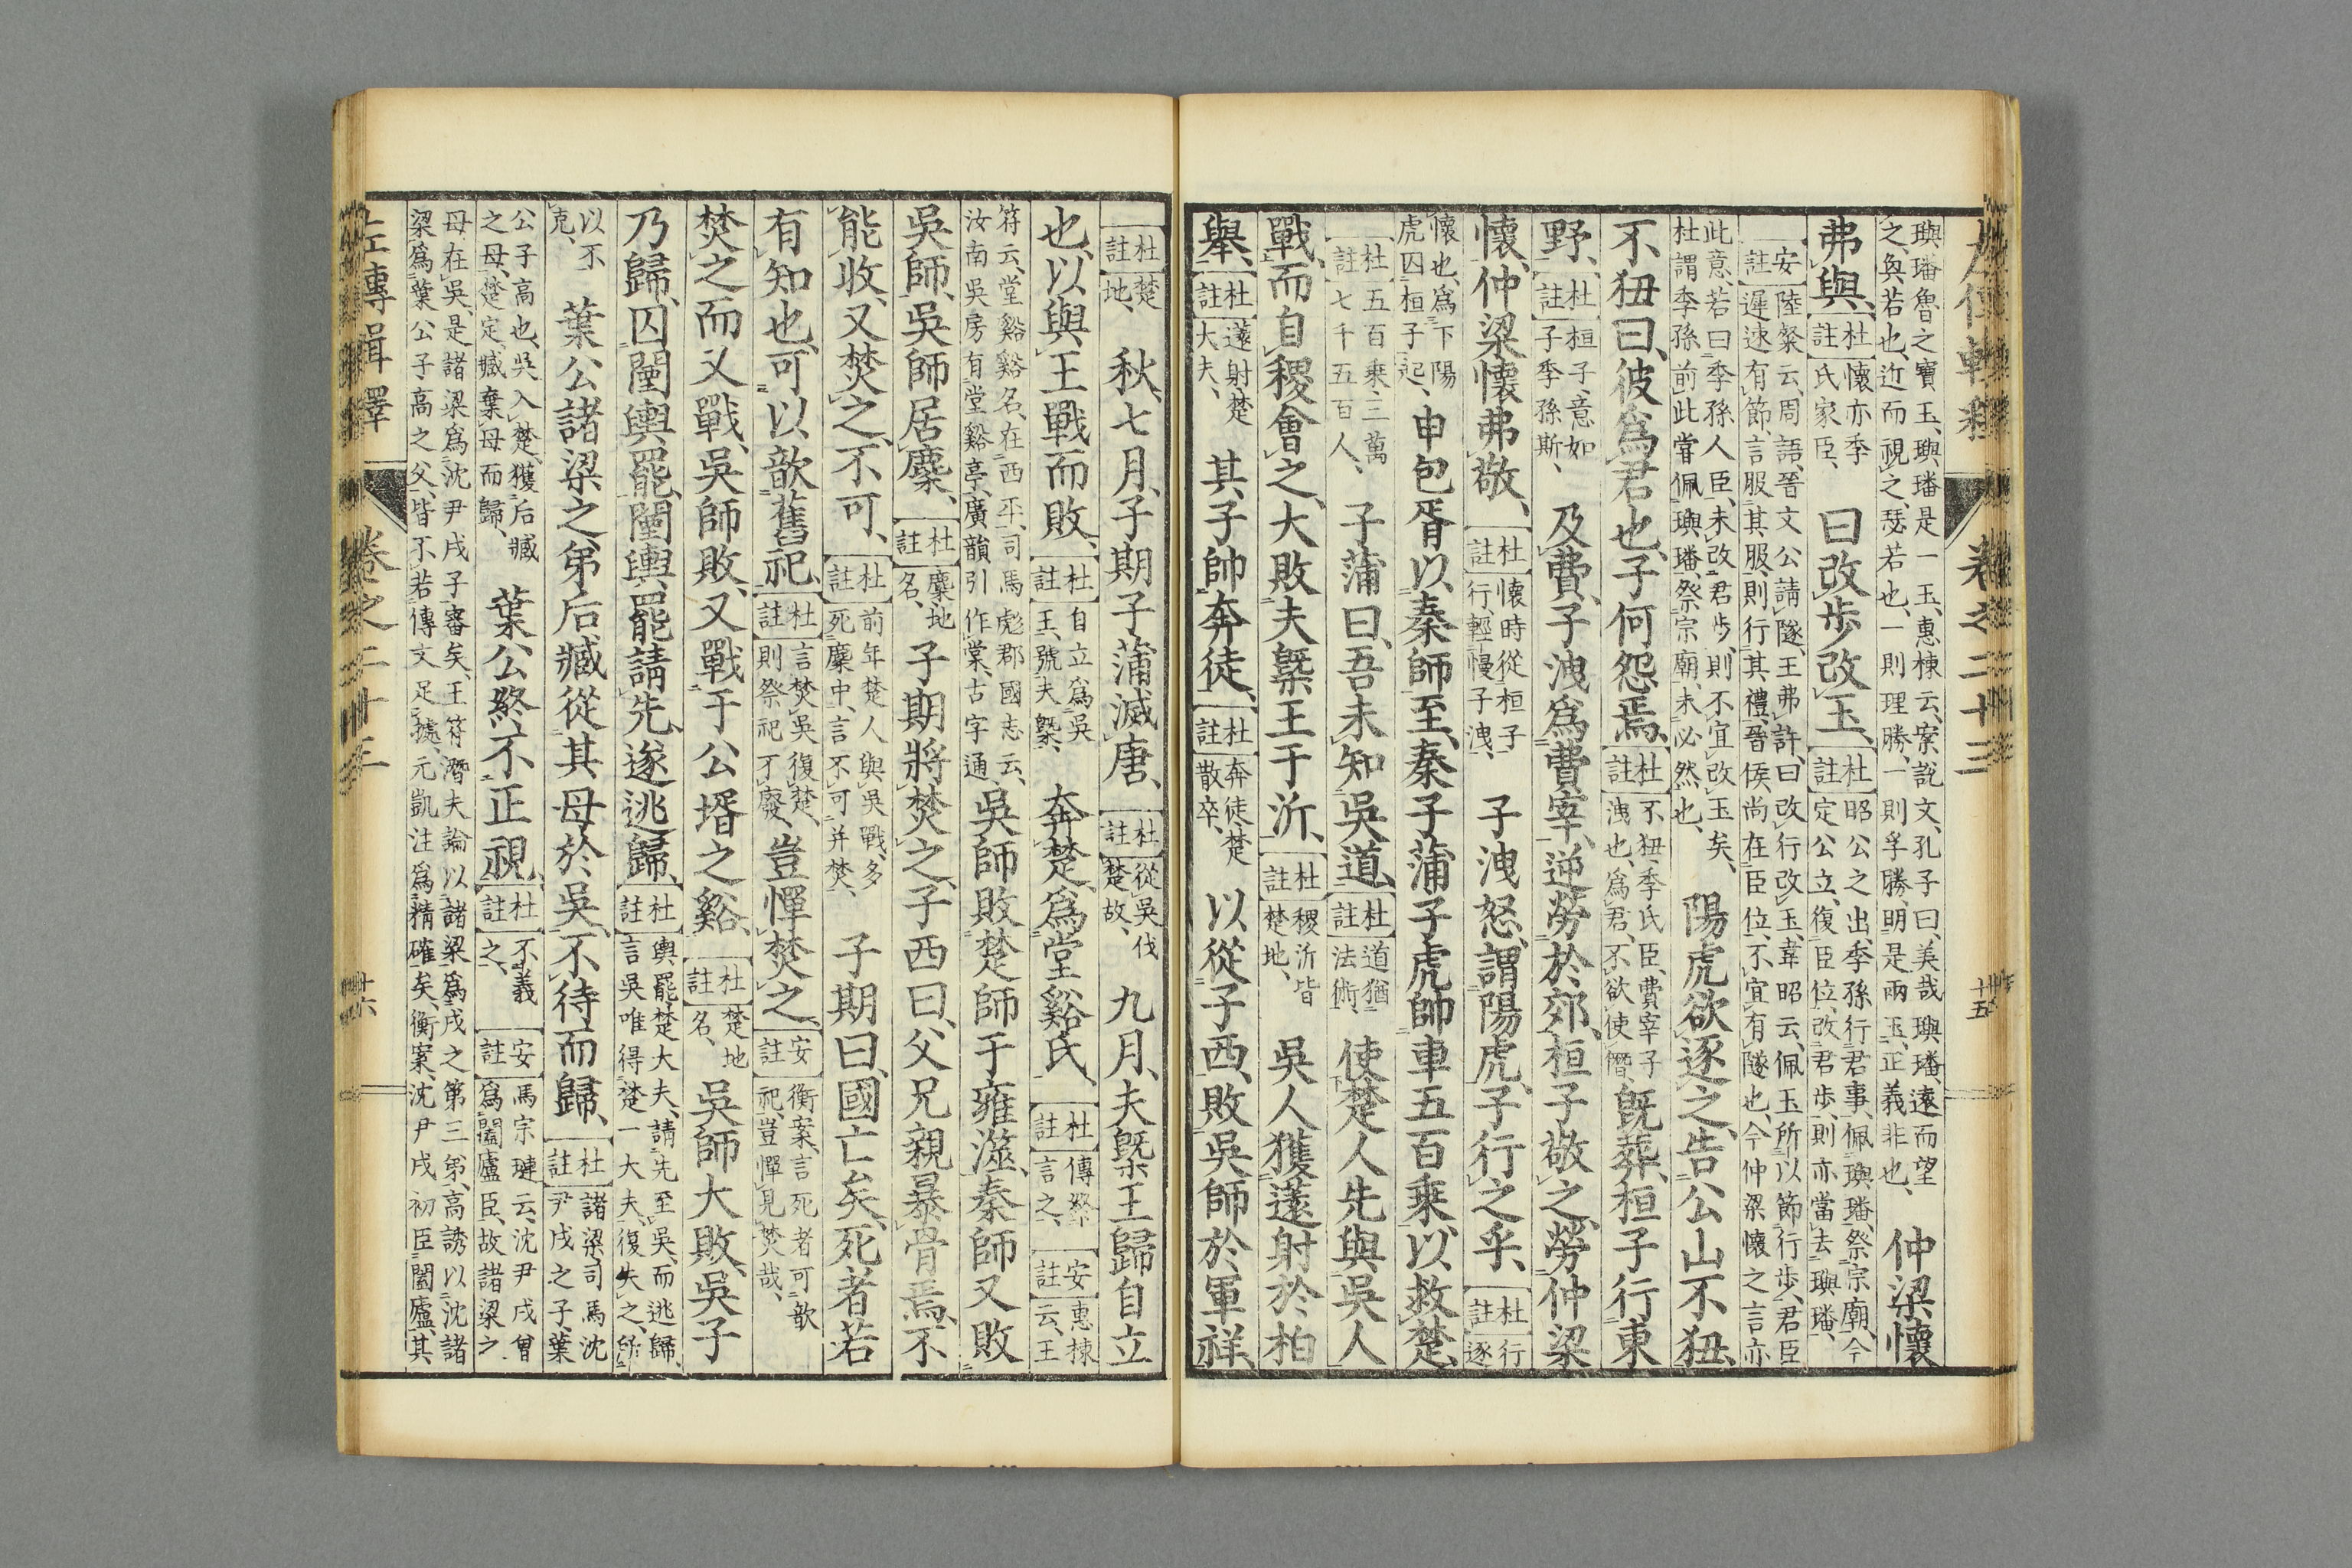 璵璠魯之寶玉、璵璠是一玉、惠棟云、案說文、孔子曰、美哉璵璠、遠而望
之、奐若也、近而視之、瑟若也、一則理勝、一則孚勝、明是兩玉、正義非也、仲梁懷
弗與、杜註懷亦季氏家臣、曰改步改玉、杜註昭公之出、季孫行君事、佩璵璠、祭宗廟、今定公立、復臣位、改君步、則亦當去璵璠、
安註陸粲云、周語、晉文公請隧、王弗許、曰改行改玉、韋昭云、佩玉所以節行步、君臣遲速有節、言服其服、則行其禮、晉侯尚在臣位、不宜有隧也、今仲梁懷之言亦
此意、若曰季孫人臣、未改君步、則不宜改玉矣、杜謂季孫前此嘗佩璵璠、祭宗廟、未必然也、陽虎欲逐之、告公山不狃、
不狃曰、彼爲君也、子何怨焉、杜註不狃、季氏臣、費宰子洩也、爲君、不欲使僭、既葬、桓子行東
野、杜註桓子、意如子季孫斯、及費、子洩爲費宰、逆勞於郊、桓子敬之、勞仲梁
懷、仲梁懷弗敬、杜註懷時從桓子行、輕慢子洩、子洩怒、謂陽虎、子行之乎、杜註行逐
懷也、爲下陽虎囚桓子起、申包胥以秦師至、秦子蒲子虎帥車五百乘、以救楚、
杜註五百乘、三萬七千五百人、子蒲曰、吾未知吳道、杜註道猶法術、使楚人先與吳人
戰、而自稷會之、大敗夫槩王于沂、杜註稷沂皆楚地、吳人獲薳射於柏
舉、杜註薳射、楚大夫、其子帥奔徒、杜註奔徒、楚散卒、以從子西、敗吳師於軍祥、
卷之二十三
十五
杜註楚地、秋、七月、子期子蒲滅唐、杜註從吳伐楚故、九月、夫槩王歸自立
也、以與王戰而敗、杜註自立爲吳王、號夫槩、奔楚、爲堂谿氏、杜註傳終言之、安註惠棟云、王
符云、堂谿、谿名、在西平、司馬彪郡國志云、汝南吳房有堂谿亭、廣韻引作棠、古字通、吳師敗楚師于雍澨、秦師又敗
吳師、吳師居麇、杜註麇、地名、子期將焚之、子西曰、父兄親暴骨焉、不
能收、又焚之、不可、杜註前年楚人與吳戰、多死麇中、言不可并焚、子期曰、國亡矣、死者若
有知也、可以歆舊祀、杜註言焚吳復楚、則祭祀不廢、豈憚焚之、安註衡案、言死者可歆祀、豈憚見焚哉、
焚之而又戰、吳師敗、又戰于公壻之谿、杜註楚地名、吳師大敗、吳子
乃歸、囚闉輿罷、闉輿罷請先、遂逃歸、杜註輿罷、楚大夫、請先至吳、而逃歸、言吳唯得楚一大夫、復失之、所
以不克、葉公諸梁之弟后臧從其母於吳、不待而歸、杜註諸梁、司馬沈尹戌之子、葉
公子高也、吳入楚、獲后臧之母、楚定、臧棄母而歸、葉公終不正視、杜註不義之、安註馬宗璉云、沈尹戌曾爲闔廬臣、故諸梁之
母、在吳、是諸梁爲沈尹戌子審矣、王符潛夫論以諸梁爲戌之第三弟、高誘以沈諸
梁爲葉公子高之父、皆不若傳文足據、元凱注爲精確矣、衡案、沈尹戌初臣闔廬、其
左傳輯釋
卷之二十三
十六